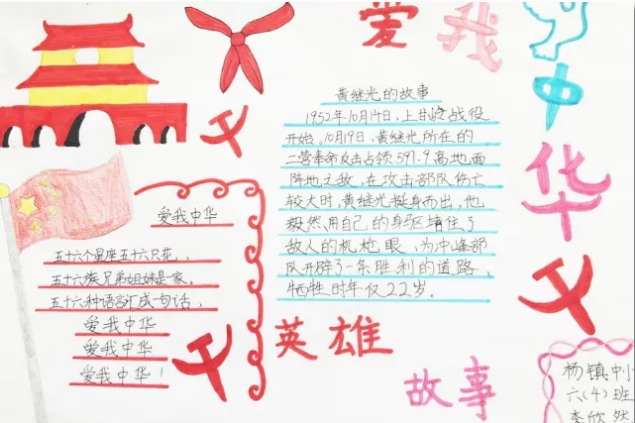 爱我
中
华
黄继光的故事
1952年10月14日，上甘岭战役
开始。10月19日，黄继光所在的
二营奉命攻击占领597.9高地面
阵地之敌，在攻击部队伤亡
较大时，黄继光挺身而出，他
毅然用自己的身躯堵住了
敌人的机枪眼，为冲锋部
队开辟了一条胜利的道路，
牺牲时年仅22岁。
爱我中华
五十六个星座五十六只花，
五十六族兄弟姐妹是一家。
五十六种语言汇成一句话，
爱我中华
爱我中华
爱我中华！
英雄
故事
杨镇中
六(4)班
李欣然